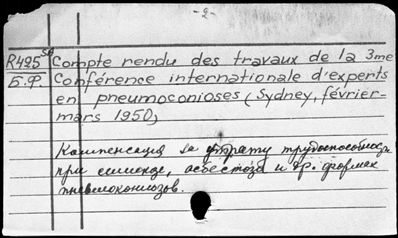 - 2 -
R425 56 Compte rendu des travaux de la 3me
Б.Ф. Conférence internationale d'experts
en pneumoconioses (Sydney, février-
mars 1950,
Компенсация за утрату трудоспособности
при силикозе, асбестозе и др. формах
пневмокониозов.